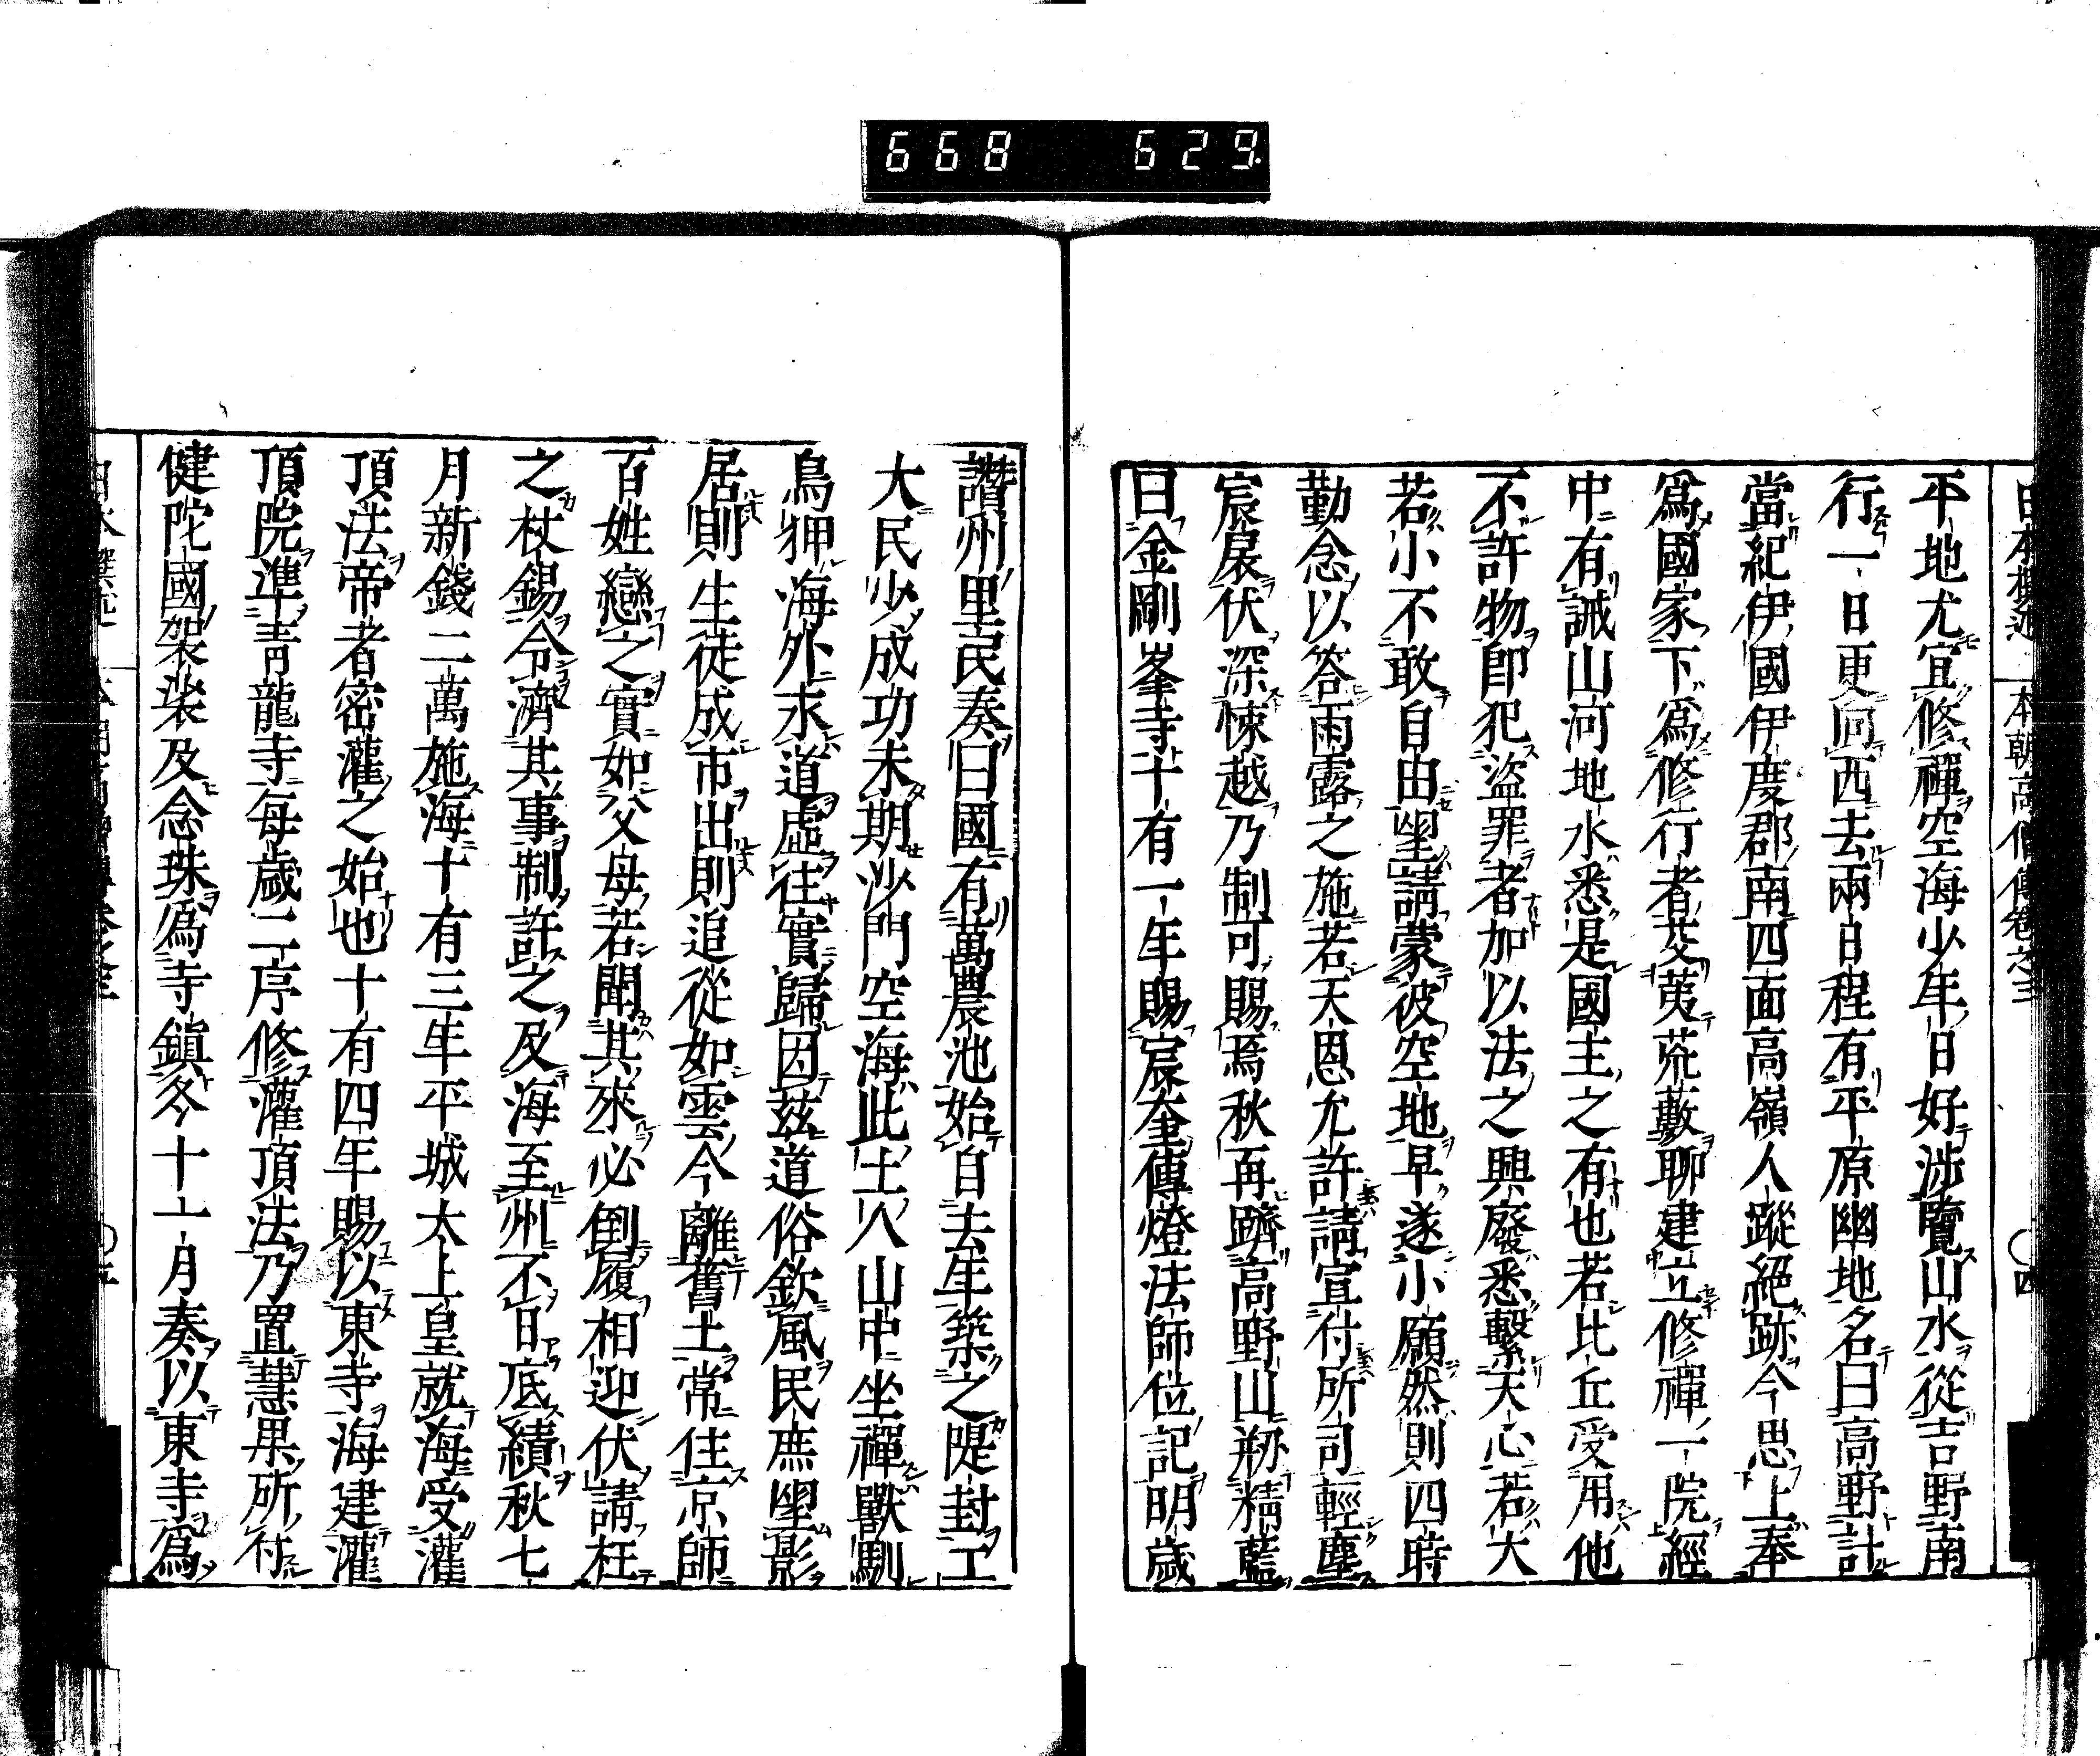 668 629
本朝高僧傳卷之三 〇四
平地尤宜修禪空海少年日好涉覽山水從吉野南
行一日更向西去兩日程有平原幽地名曰高野計
當紀伊國伊度郡南四面高嶺人蹤絕跡今思上奉
爲國家下爲修行者芟荑荒藪聊建立修禪一院經
中有誡山河地水悉是國主之有也若比丘受用他
不許物卽犯盜罪者加以法之興廢悉繫天心若大
若小不敢自由望請蒙彼空地早遂小願然則四時
勤念以答雨露之施若天恩允許請宣付所司輕塵
宸扆伏深悚越乃制可賜焉秋再躋高野山剏精藍
曰金剛峯寺十有一年賜宸奎傳燈法師位記明歲
讚州里民奏曰國有萬農池始自去年築之隄封工
大民少成功未期沙門空海此土人山中坐禪獸馴
鳥狎海外求道虛往實歸因茲道俗欽風民庶望影
居則生徒成市出則追從如雲今離舊土常住京師
百姓戀之實如父母若聞其來必倒履相迎伏請枉
之杖錫令濟其事制許之及海至州不日底績秋七
月新錢二萬施海十有三年平城太上皇就海受灌
頂法帝者密灌之始也十有四年賜以東寺海建灌
頂院準靑龍寺每歲二序修灌頂法乃置慧果所付
健陀國袈裟及念珠爲寺鎭冬十一月奏以東寺爲